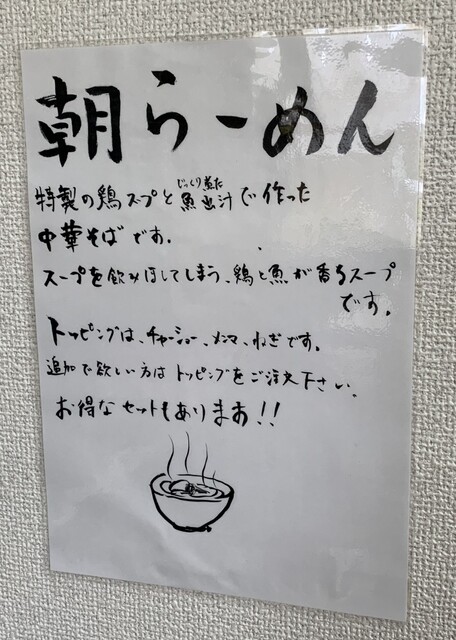 朝らーめん
じっくり煮た
特製の鶏スープと魚出汁で作った
中華そばです。
スープを飲みほしてしまう、鶏と魚が香るスープ
です。
トッピングは、チャーシュー、メンマ、ねぎです。
追加で欲しい方はトッピングをご注文下さい。
お得なセットもあります!!